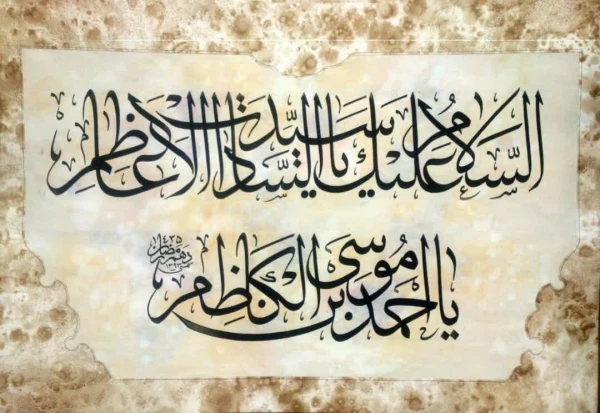 السَّلامُ عَلیكَ یا سَیِّدَ السّاداتِ الأعاظِم
یا احمد بن موسی الکاظم